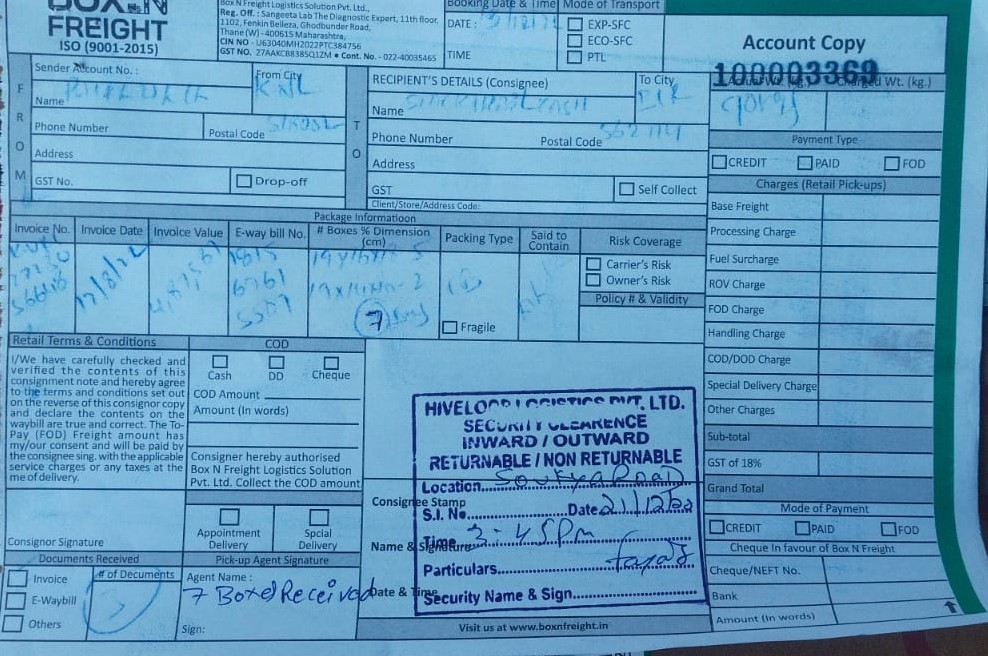 BOX N
FREIGHT
ISO (9001-2015)
Box N Freight Logistics Solution Pvt. Ltd.,
Reg. Off. : Sangeeta Lab The Diagnostic Expert, 11th floor,
1102, Fenkin Belleza, Ghodbunder Road,
Thane (W) - 400615 Maharashtra,
CIN NO - U63040MH2022PTC384756
GST NO. 27AAKCB8385Q1ZM • Cont. No. - 022-40035465
Booking Date & Time
DATE :
TIME
Mode of Transport
EXP-SFC
ECO-SFC
PTL
Account Copy
100003369
F R O M
Sender Account No. :
From City
KNL
Name
Phone Number
Postal Code
Address
GST No.
Drop-off
T O
RECIPIENT'S DETAILS (Consignee)
To City
BLR
Name
Phone Number
Postal Code
562114
Address
GST
Self Collect
Client/Store/Address Code:
Actual Wt. (kg.)
Charged Wt. (kg.)
90kgs
Payment Type
CREDIT PAID FOD
Charges (Retail Pick-ups)
Base Freight
Processing Charge
Fuel Surcharge
ROV Charge
FOD Charge
Handling Charge
COD/DOD Charge
Special Delivery Charge
Other Charges
Sub-total
GST of 18%
Grand Total
Mode of Payment
CREDIT PAID FOD
Cheque In favour of Box N Freight
Cheque/NEFT No.
Bank
Amount (In words)
Package Informatioon
Invoice No. Invoice Date Invoice Value E-way bill No. # Boxes % Dimension (cm) Packing Type Said to Contain
1815
6761
5507
7
Fragile
Risk Coverage
Carrier's Risk
Owner's Risk
Policy # & Validity
Retail Terms & Conditions
I/We have carefully checked and
verified the contents of this
consignment note and hereby agree
to the terms and conditions set out
on the reverse of this consignor copy
and declare the contents on the
waybill are true and correct. The To-
Pay (FOD) Freight amount has
my/our consent and will be paid by
the consignee sing. with the applicable
service charges or any taxes at the
me of delivery.
Consignor Signature
COD
Cash DD Cheque
COD Amount
Amount (In words)
Consigner hereby authorised
Box N Freight Logistics Solution
Pvt. Ltd. Collect the COD amount
Appointment Delivery
Spcial Delivery
Documents Received
Invoice
E-Waybill
Others
# of Decuments
3
Pick-up Agent Signature
Agent Name :
7 Boxes Received
Sign:
Consignee Stamp
Name & Signature
Date & Time
HIVELOOP LOGISTICS PVT. LTD.
SECURITY CLEARENCE
INWARD / OUTWARD
RETURNABLE / NON RETURNABLE
Location Soukya Road
S.I. No. Date 21/12/22
Time 3:45pm
Particulars
Security Name & Sign
Visit us at www.boxnfreight.in